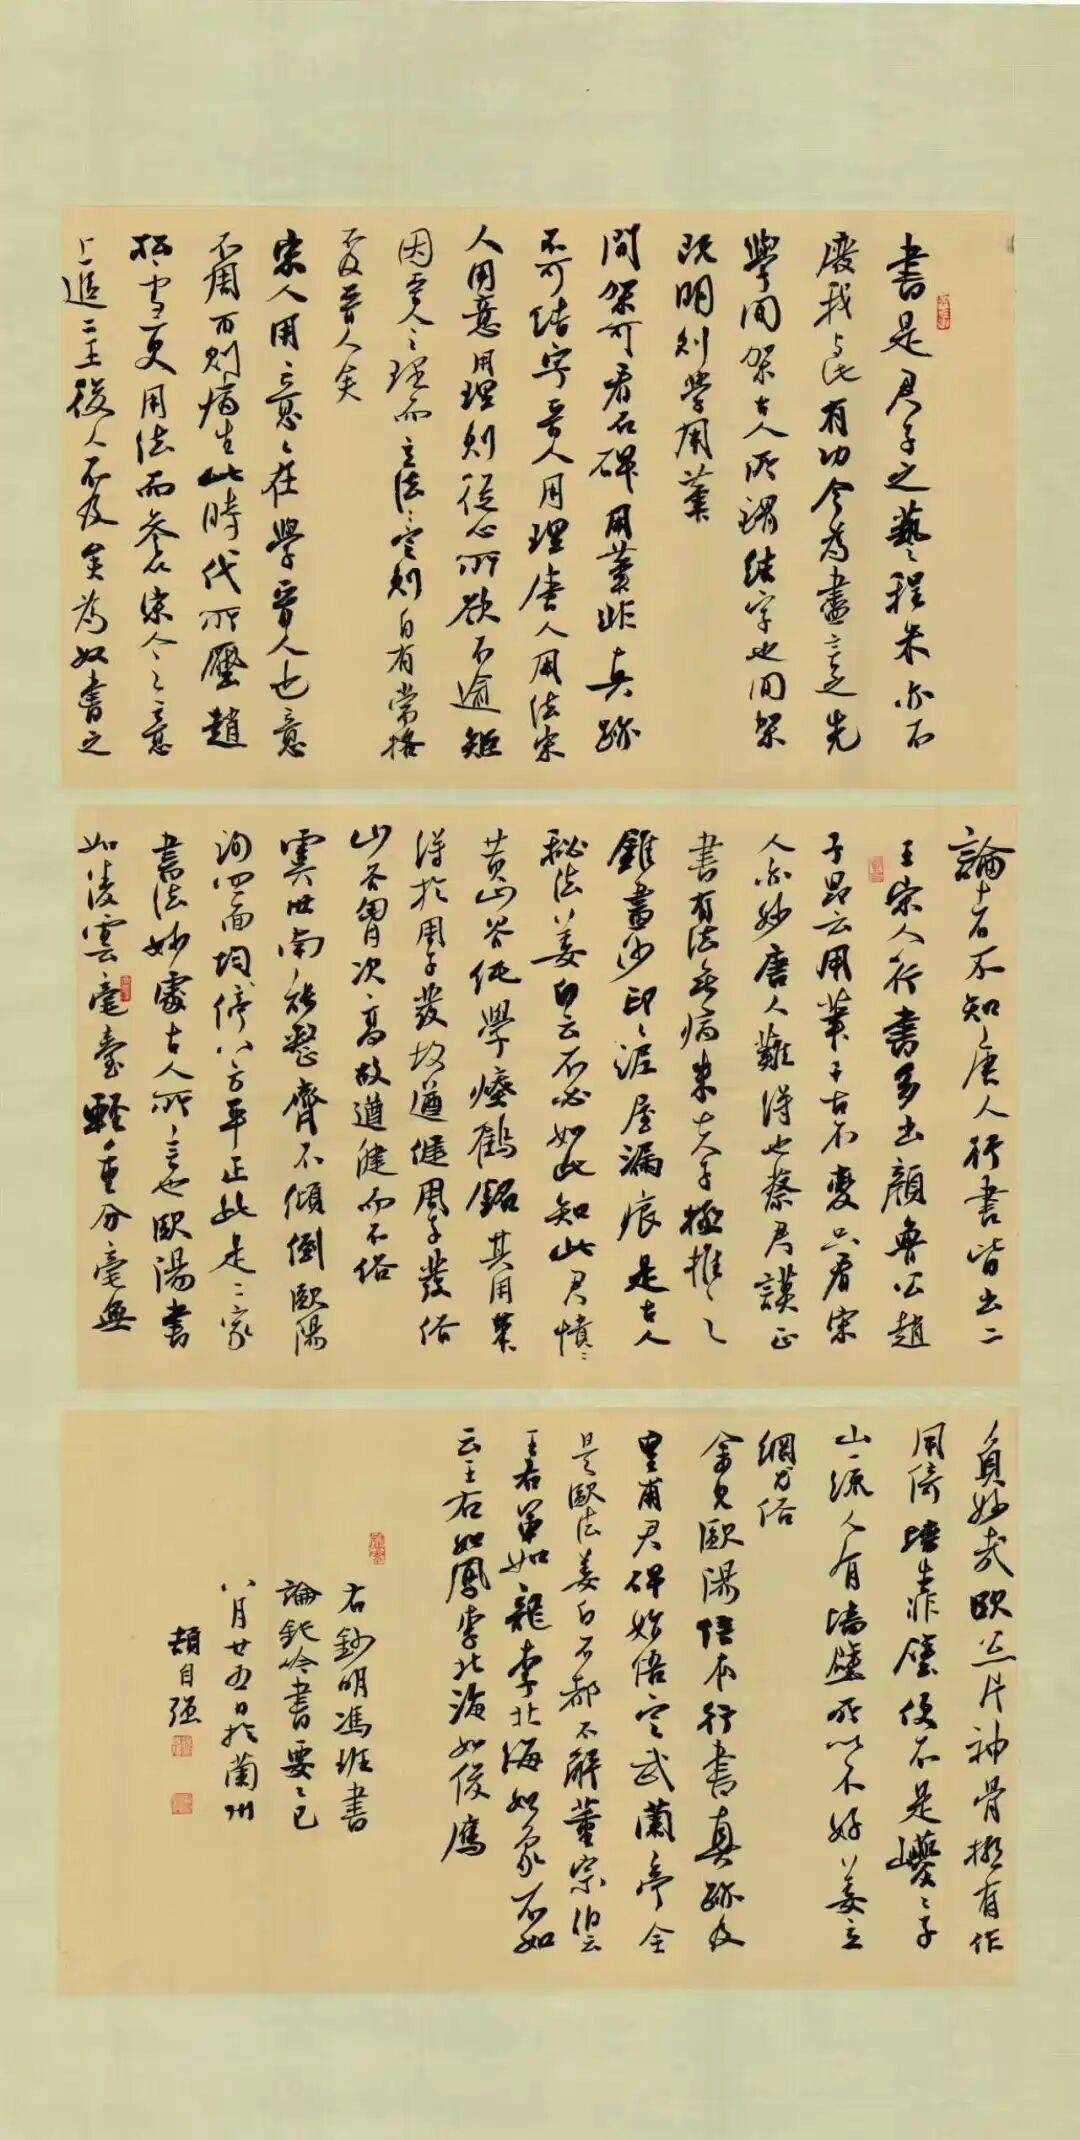 書是君子之藝程朱亦不
廢我於此有功今為盡言之先
學間架古人所謂結字也間架
既明則學用筆
間架可看石碑用筆非真跡
不可結字晉人用理唐人用法宋
人用意用理則從心所欲不逾矩
因晉人之理而立法法定則自有常格
不及晉人矣
宋人用意意在學晉人也意
不周而則病生此時代所壓趙
松雪更用法而參以宋人之意
上追二王後人不及矣為奴書之
論者不知唐人行書皆出二
王宋人行書多出顏魯公趙
子昂云用筆千古不變只看宋
人亦妙唐人難得也蔡君謨正
書有法無病朱夫子極推之
錐畫沙印印泥屋漏痕是古人
秘法姜白云不必如此知此君憒憒
黃山谷純學瘞鶴銘其用筆
得於周子發故遒健周子發俗
山谷胸次高故遒健而不俗
虞世南能整齊不傾倒歐陽
詢四面均停八方平正此是二家
書法妙處古人所言也歐陽書
如凌雲臺輕重分毫無
負妙哉歐公一片神骨極有作
用倚牆靠壁便不是嶧嶧子
山一流人有牆壁所以不好姜立
綱尤俗
余見歐陽信本行書真跡及
皇甫君碑始悟定武蘭亭全
是歐法姜白石都不解董宗伯云
王右軍如龍李北海如象不如
云王右如鳳李北海如俊鷹
右鈔明馮班書
論鈍吟書要之已
八月廿五日於蘭州
趙自強